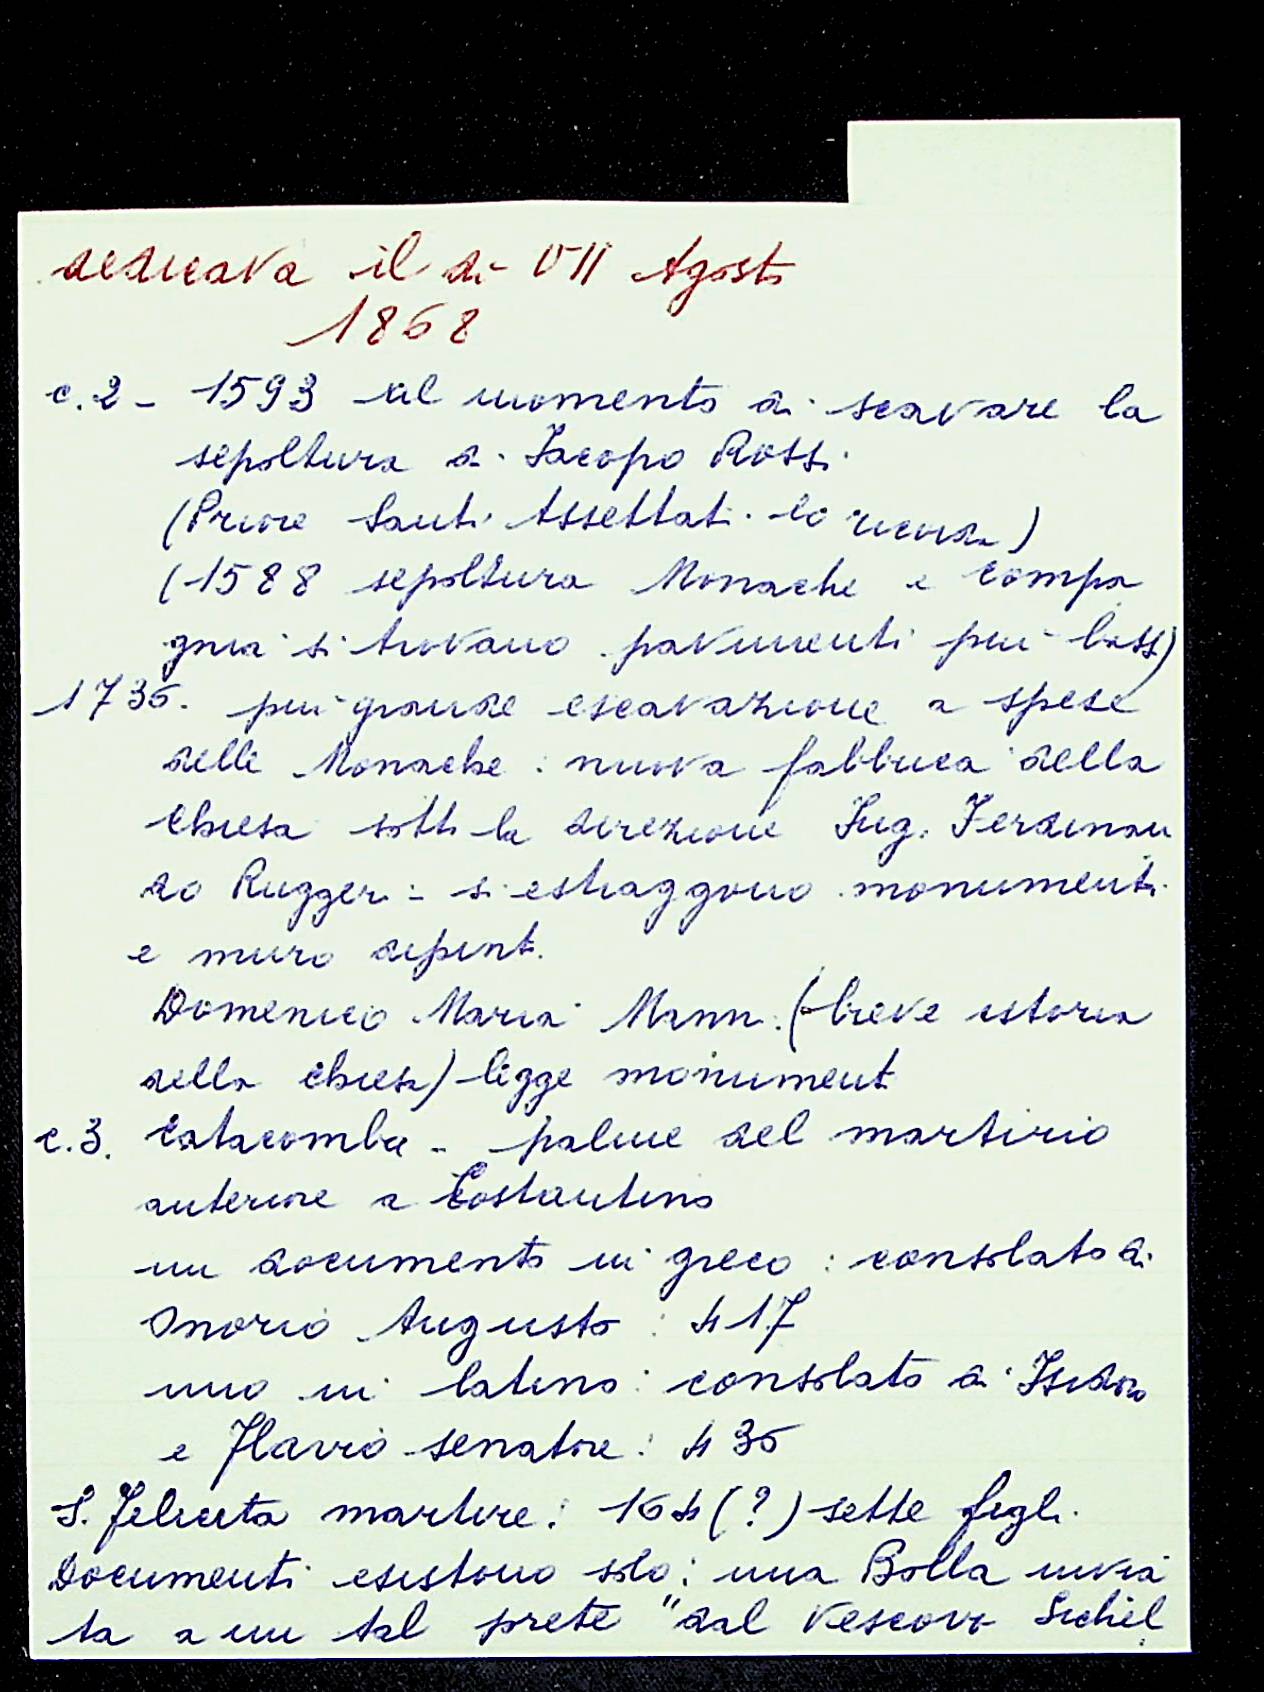 dedicava il dì VII Agosto
1868
c. 2 - 1593 al momento di scavare la
sepoltura di Iacopo Rossi.
(Priore Santi Assettati lo ricorda)
(1588 sepoltura Monache e Compa
gnia si trovano pavimenti più bassi)
1736. più grande escavazione a spese
delle Monache: nuova fabbrica della
Chiesa sotto la direzione Ing. Ferdinan
do Ruggeri - si estraggono monumenti
e muro dipinti.
Domenico Maria Manni (breve istoria
della chiesa) legge monumenti
c. 3. Catacomba - palme del martirio
anteriore a Costantino
un documento in greco: consolato di
Onorio Augusto: 417
uno in latino: consolato di Isidoro
e Flavio senatore: 436
S. Felicita martire: 164 (?) sette figli.
Documenti esistono solo: una Bolla invia
ta a un tal prete "dal Vescovo Sichel